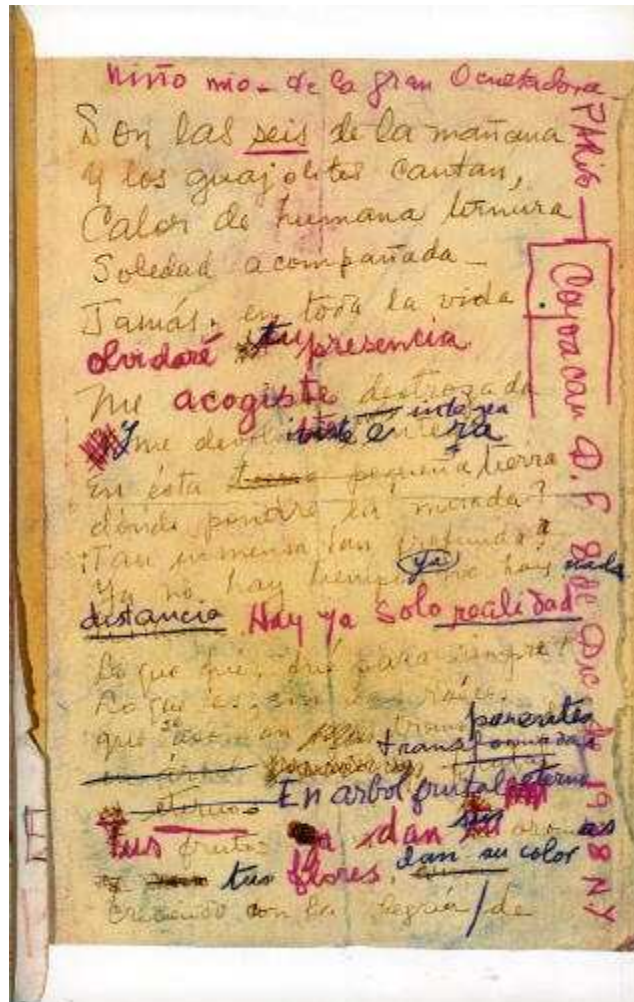 Niño mio_ de la gran Ocultadora_
Son las seis de la mañana
y los guajolotes cantan,
Calor de humana ternura
Soledad acompañada_
Jamás, en toda la vida
olvidaré tu presencia
Me acogiste destrozada
y me devolviste entera
integra
En ésta pequeña tierra
dónde pondré la mirada?
¡Tan inmensa tan profunda!
Ya no hay tiempo, ya no hay nada
distancia. Hay ya solo realidad
Lo que fué, fué para siempre!
Lo que es, son las raíces
que se transparentes
transformadas
En arbol frutal eterno
Tus frutas ya dan sus aromas
tus flores dan su color
creciendo con la alegría de
PARIS — Coyoacan D.F. 8 de Dic de 1938 N.Y